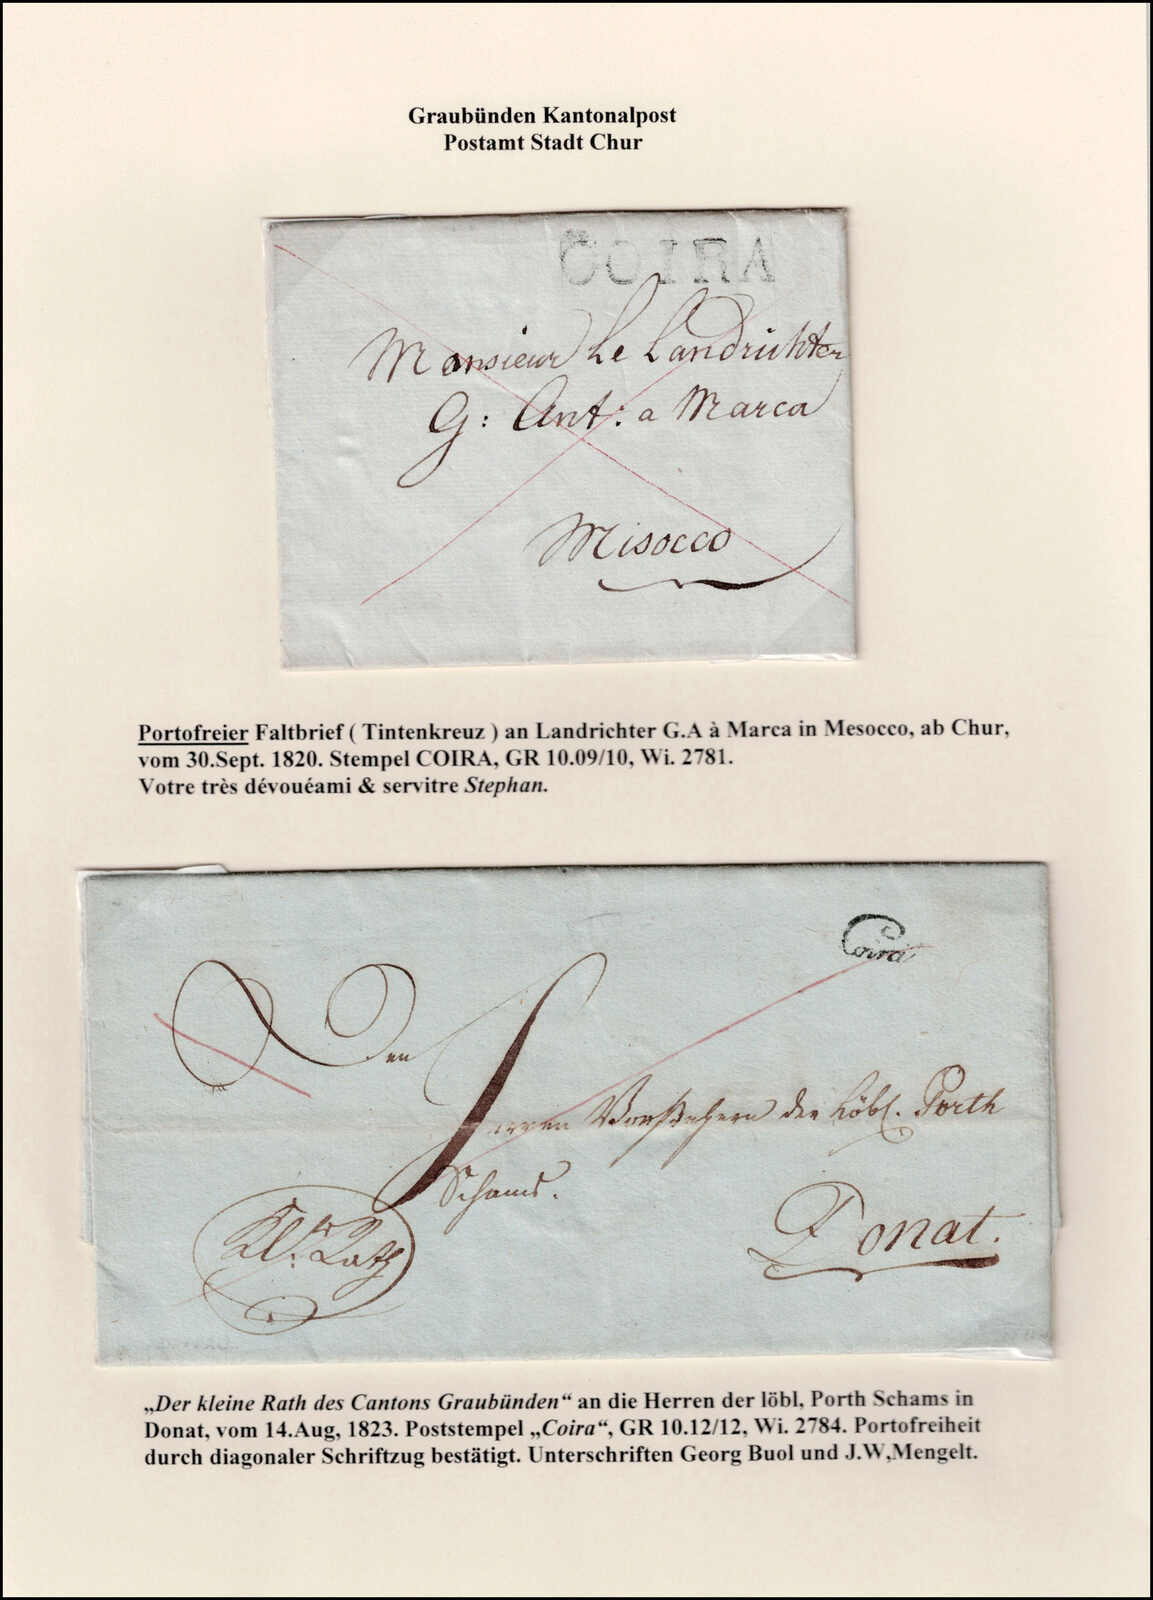 Graubünden Kantonalpost
Postamt Stadt Chur
COIRA
Monsieur Le Landrichter
G: Ant: a Marca
Misocco
Portofreier Faltbrief ( Tintenkreuz ) an Landrichter G.A à Marca in Mesocco, ab Chur,
vom 30.Sept. 1820. Stempel COIRA, GR 10.09/10, Wi. 2781.
Votre très dévouéami & servitre Stephan.
Coira
Den
Herren Vorstehern der Löbl. Porth
Schams.
Kl:r Rath
Donat.
„Der kleine Rath des Cantons Graubünden“ an die Herren der löbl, Porth Schams in
Donat, vom 14.Aug, 1823. Poststempel „Coira“, GR 10.12/12, Wi. 2784. Portofreiheit
durch diagonaler Schriftzug bestätigt. Unterschriften Georg Buol und J.W,Mengelt.